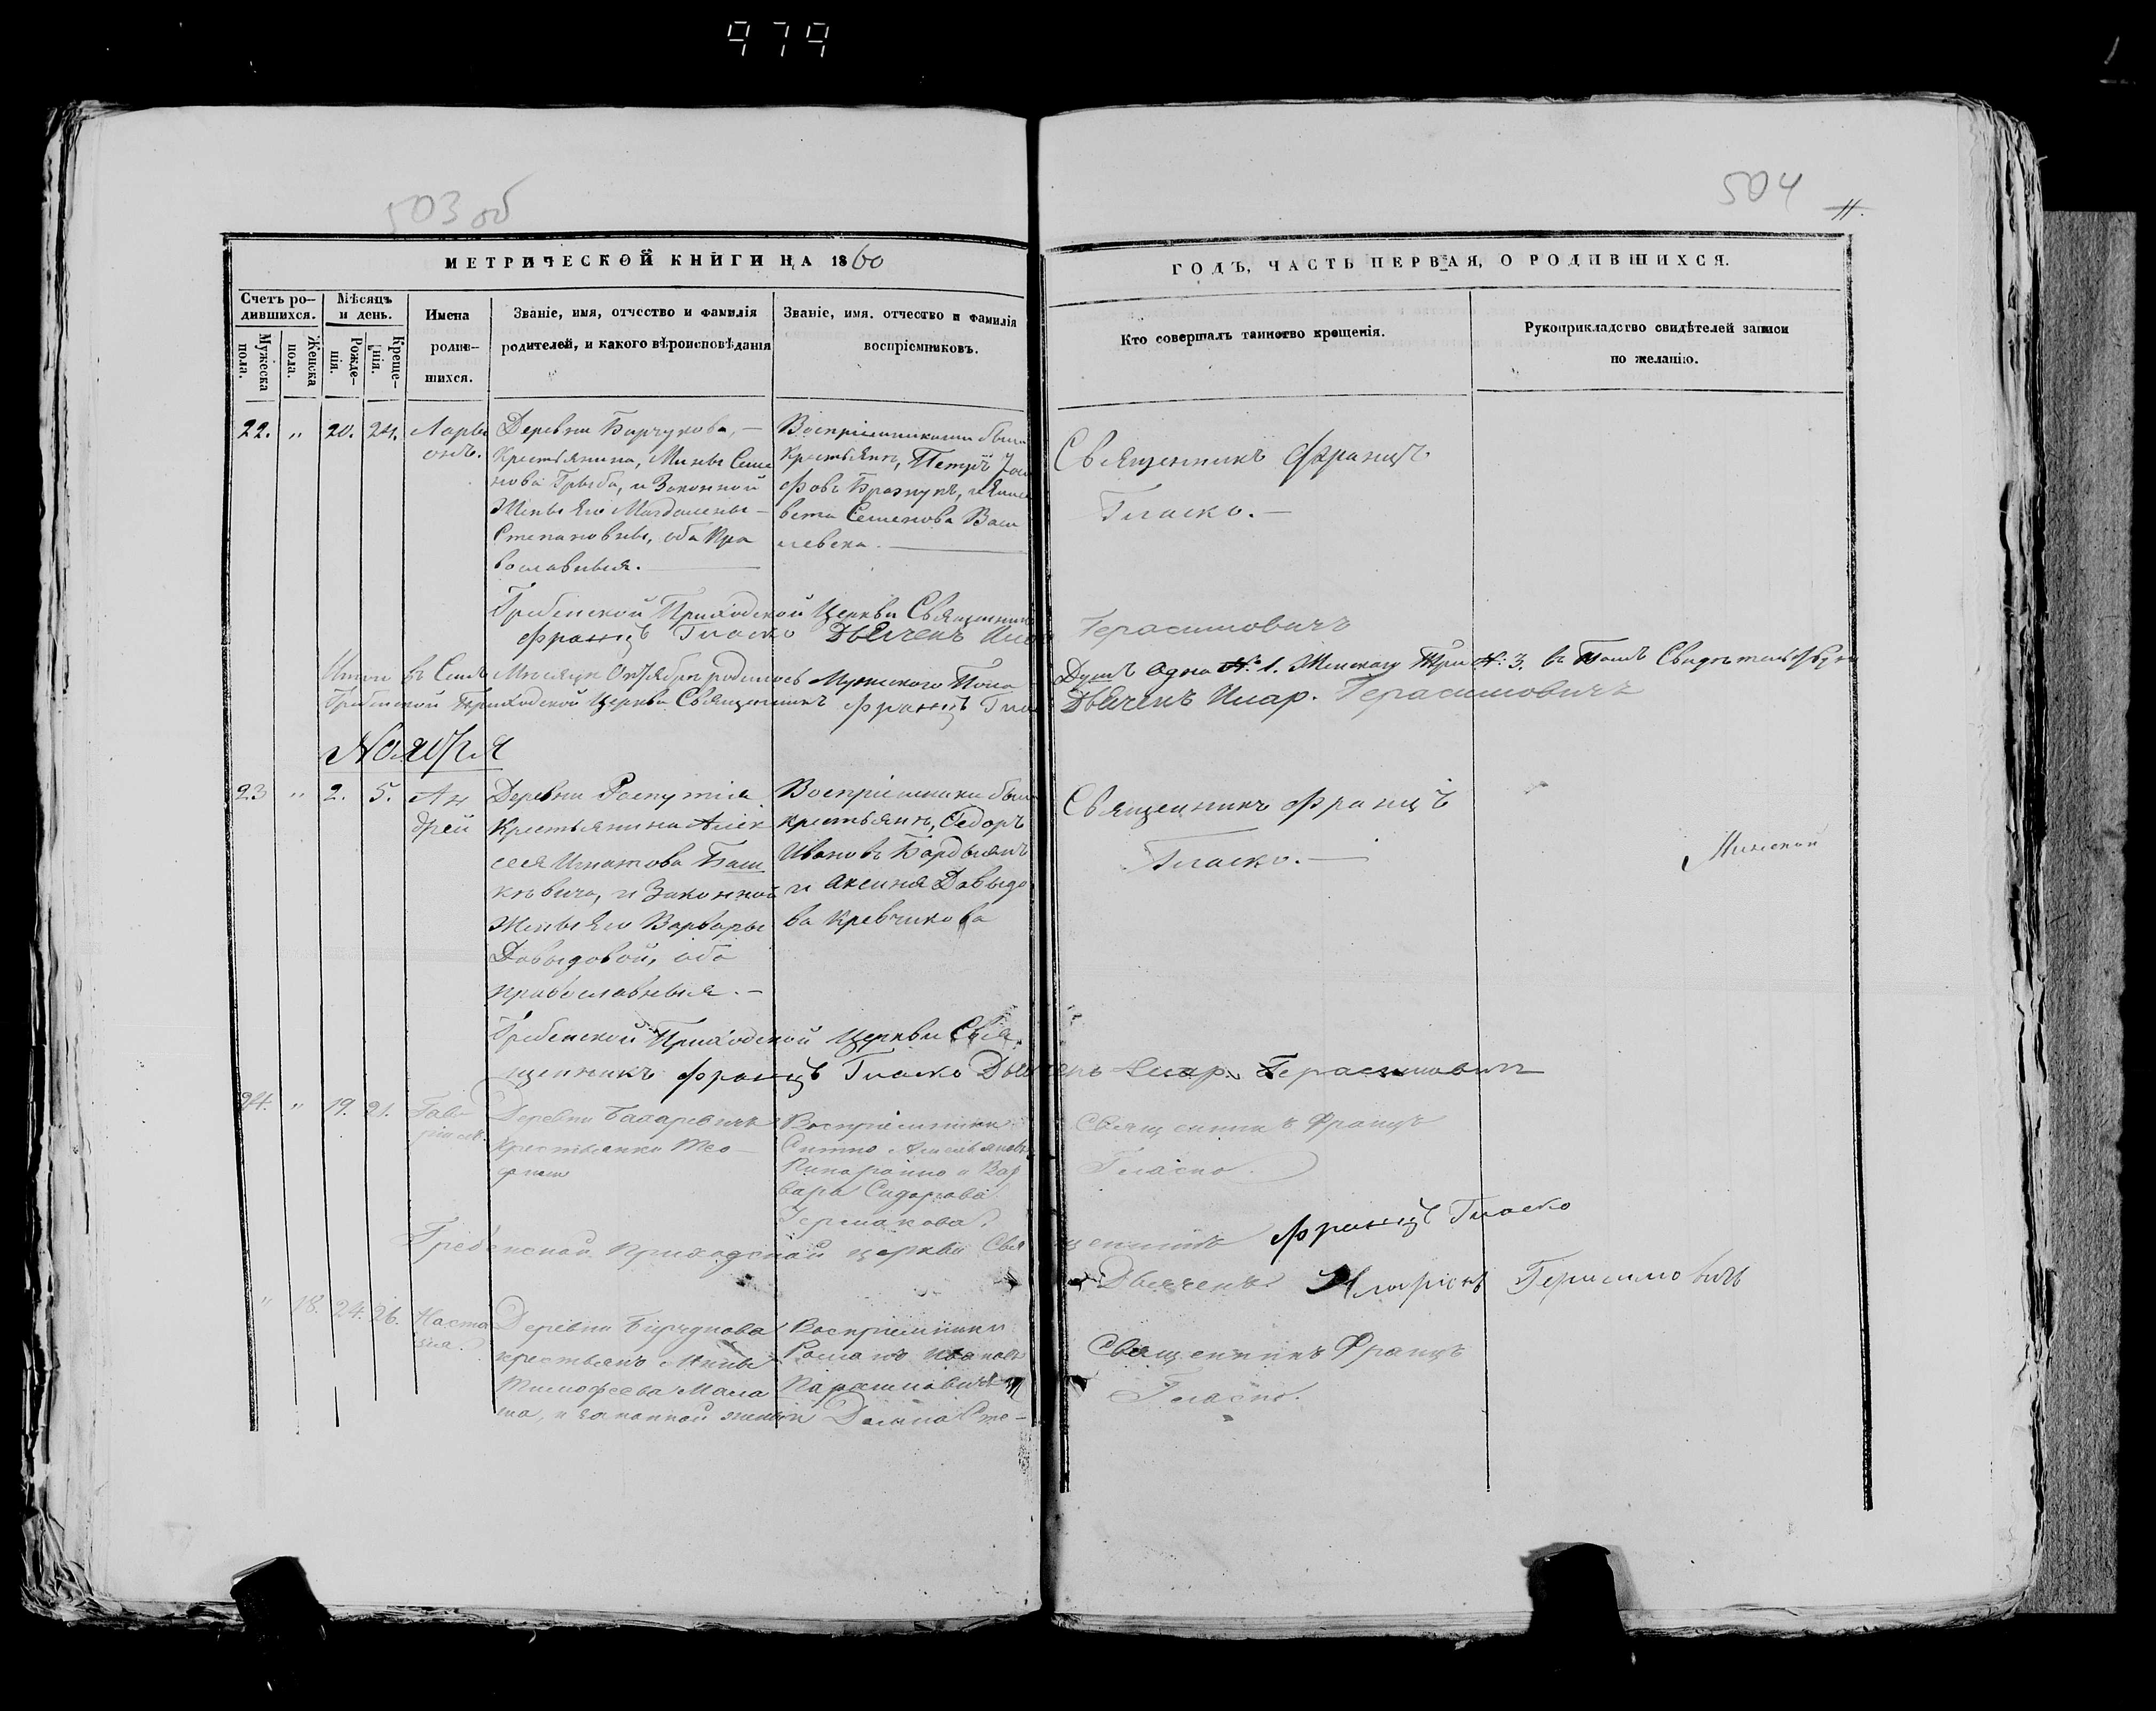 979
503 об
504
11.
МЕТРИЧЕСКОЙ КНИГИ НА 1860
ГОДЪ, ЧАСТЬ ПЕРВАЯ, О РОДИВШИХСЯ.
Счетъ ро-
дившихся.
Мужеска
пола.
Женска
пола.
Мѣсяцъ
и день.
Рожде-
нія.
Креще-
нія.
Имена
родив-
шихся.
Званіе, имя, отчество и фамилія
родителей, и какого вѣроисповѣданія
Званіе, имя. отчество и фамилія
воспріемниковъ.
Кто совершалъ таинство крещенія.
Рукоприкладство свидѣтелей записи
по желанію.
22. " 20. 24. Ларі
онъ.
Деревни Барчукова, —
Крестьянина, Мины Семе
нова Грыба, и Законной
Жены Его Магдалены —
Степановны, оба Пра
вославныя.
Воспріемниками были
Крестьянъ, Петръ
фовъ и Елиса
вета Семенова Васи
левска.
Священникъ Францъ
Гласко. —
Гребенской Приходской Церкви Священникъ
Францъ Гласко Дьячекъ Илар
Герасимовичъ
Итого въ Семъ Мѣсяцѣ Октябрѣ родилось Мужескаго Пола
Душъ Одна № 1. Женскаго Три №: 3. въ томъ Свидѣтельствуемъ
Гребенской Приходской Церкви Священникъ Францъ Гласко
Дьячекъ Илар. Герасимовичъ
Ноября
23 " 2. 5. Ан
дрей
Деревни
Крестьянина Алек
сея Игнатова Баш
кѣвича, и Законной
Жены Его Варвары
Давыдовой, оба
православныя. —
Воспріемники были
крестьянъ, Федоръ
Ивановъ
и Аксинія Давыдо
ва Кревчикова
Священникъ Францъ
Гласко. —
Минской
Гребенской Приходской Церкви Свя
щенникъ Францъ Гласко Дьячекъ Илар. Герасимовичъ
24. " 19. 21. Гав
ріилъ.
Деревни
Крестьянки Тео
филі
Воспріемники
и Вар
вара Сидорова
Ермакова.
Священникъ Францъ
Гласко.
Гребенской приходской церкви Свя
щенникъ Францъ Гласко
Дьячекъ Иларіонъ Герасимовичъ
" 18. 24. 26. Наста
зія.
Деревни Барчукова
крестьянъ Мины
Тимофеева Мала
ша, и законной жены
Воспріемники
Романъ Ивановъ
и
Домна Сте-
Священникъ Францъ
Гласко.